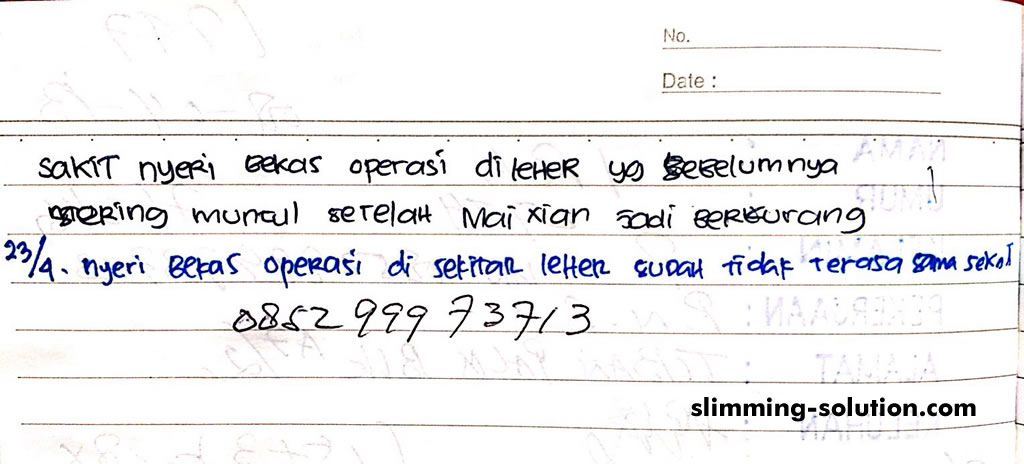 No.
Date :
sakit nyeri bekas operasi di leher yg sebelumnya
sering muncul setelah Mai xian jadi berkurang
23/4. nyeri bekas operasi di sekitar leher sudah tidak terasa sama sekali
0852 999 73713
NAMA
UMUR
PEKERJAAN :
ALAMAT :
KELUHAN
slimming-solution.com